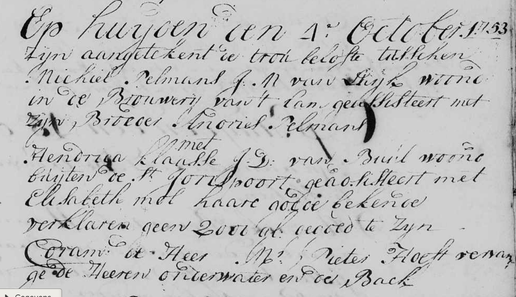 Op huijden den 4e October 1753
Zijn aangetekent de trou belofte tusschen
Michiel Pelmans J. M van woond
in de Brouwerij van't Lam geadsisteert met
Zijn Broeder Andries Pelmans
met
Hendrica klaasse J: D: van Buil woond
buijten de St Joris poort, geadsisteert met
Elisabeth mol haare goede bekende
verklaren geen 2000 gl gegoed te Zijn
Coram de Heer Mr Pieter Hooft vervan
ge de Heeren onderwater en de Back